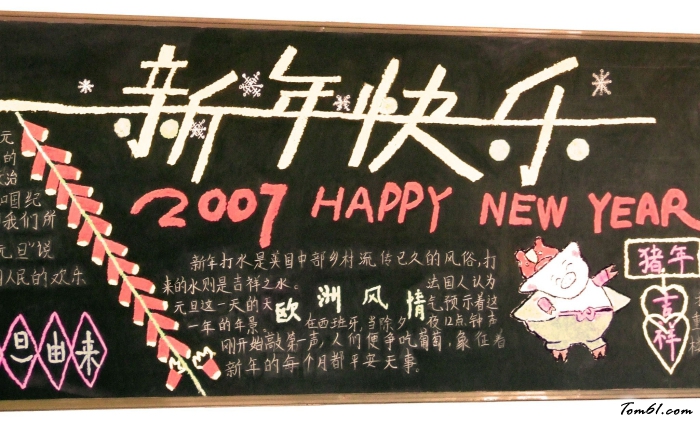 新年快乐
2007 HAPPY NEW YEAR
元
的
治
口国纪
我们所
元旦"说
人民的欢乐
旦由来
新年打水是英国中部乡村流传已久的风俗,打
来的水则是吉祥之水。
法国人认为
元旦这一天的天
气预示着这
一年的年景。
欧洲风情
在西班牙,当除夕夜12点钟声
刚开始敲第一声,人们便争吃葡萄,象征着
新年的每个月都平安无事.
猪年
吉祥
Tom61.com